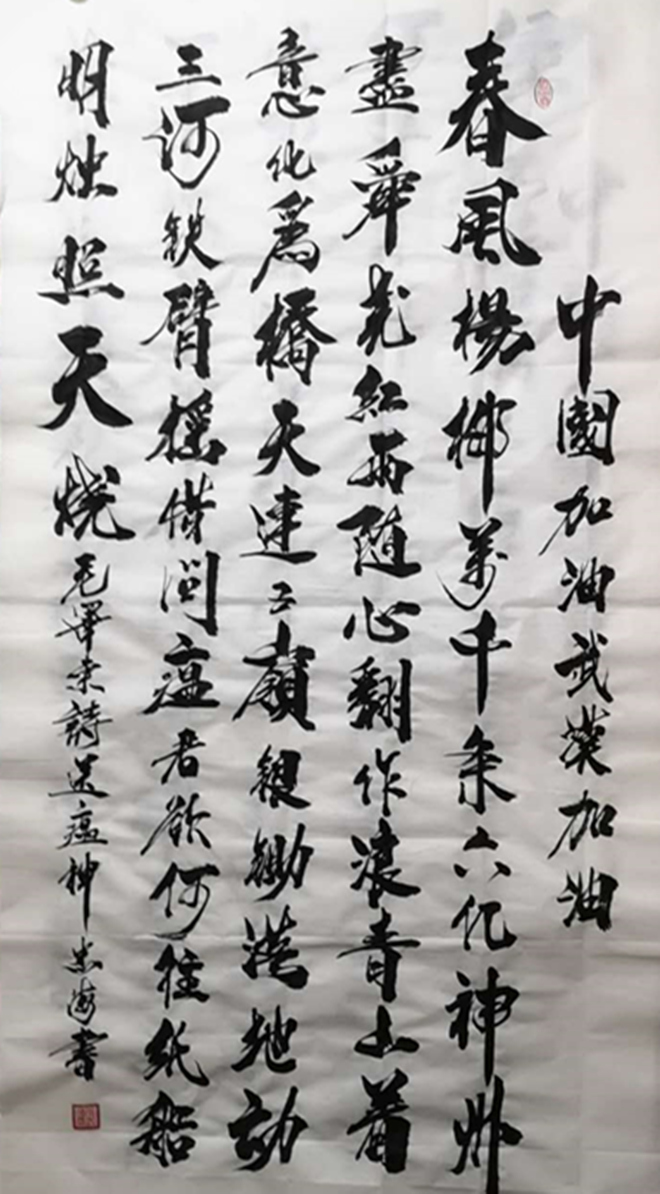 中國加油武漢加油
春風楊柳萬千条六亿神州
盡舜尧红雨随心翻作浪青山着
意化爲橋天連五嶺银锄落地动
三河铁臂摇借问瘟君欲何往纸船
明烛照天烧毛澤东詩送瘟神忠海書